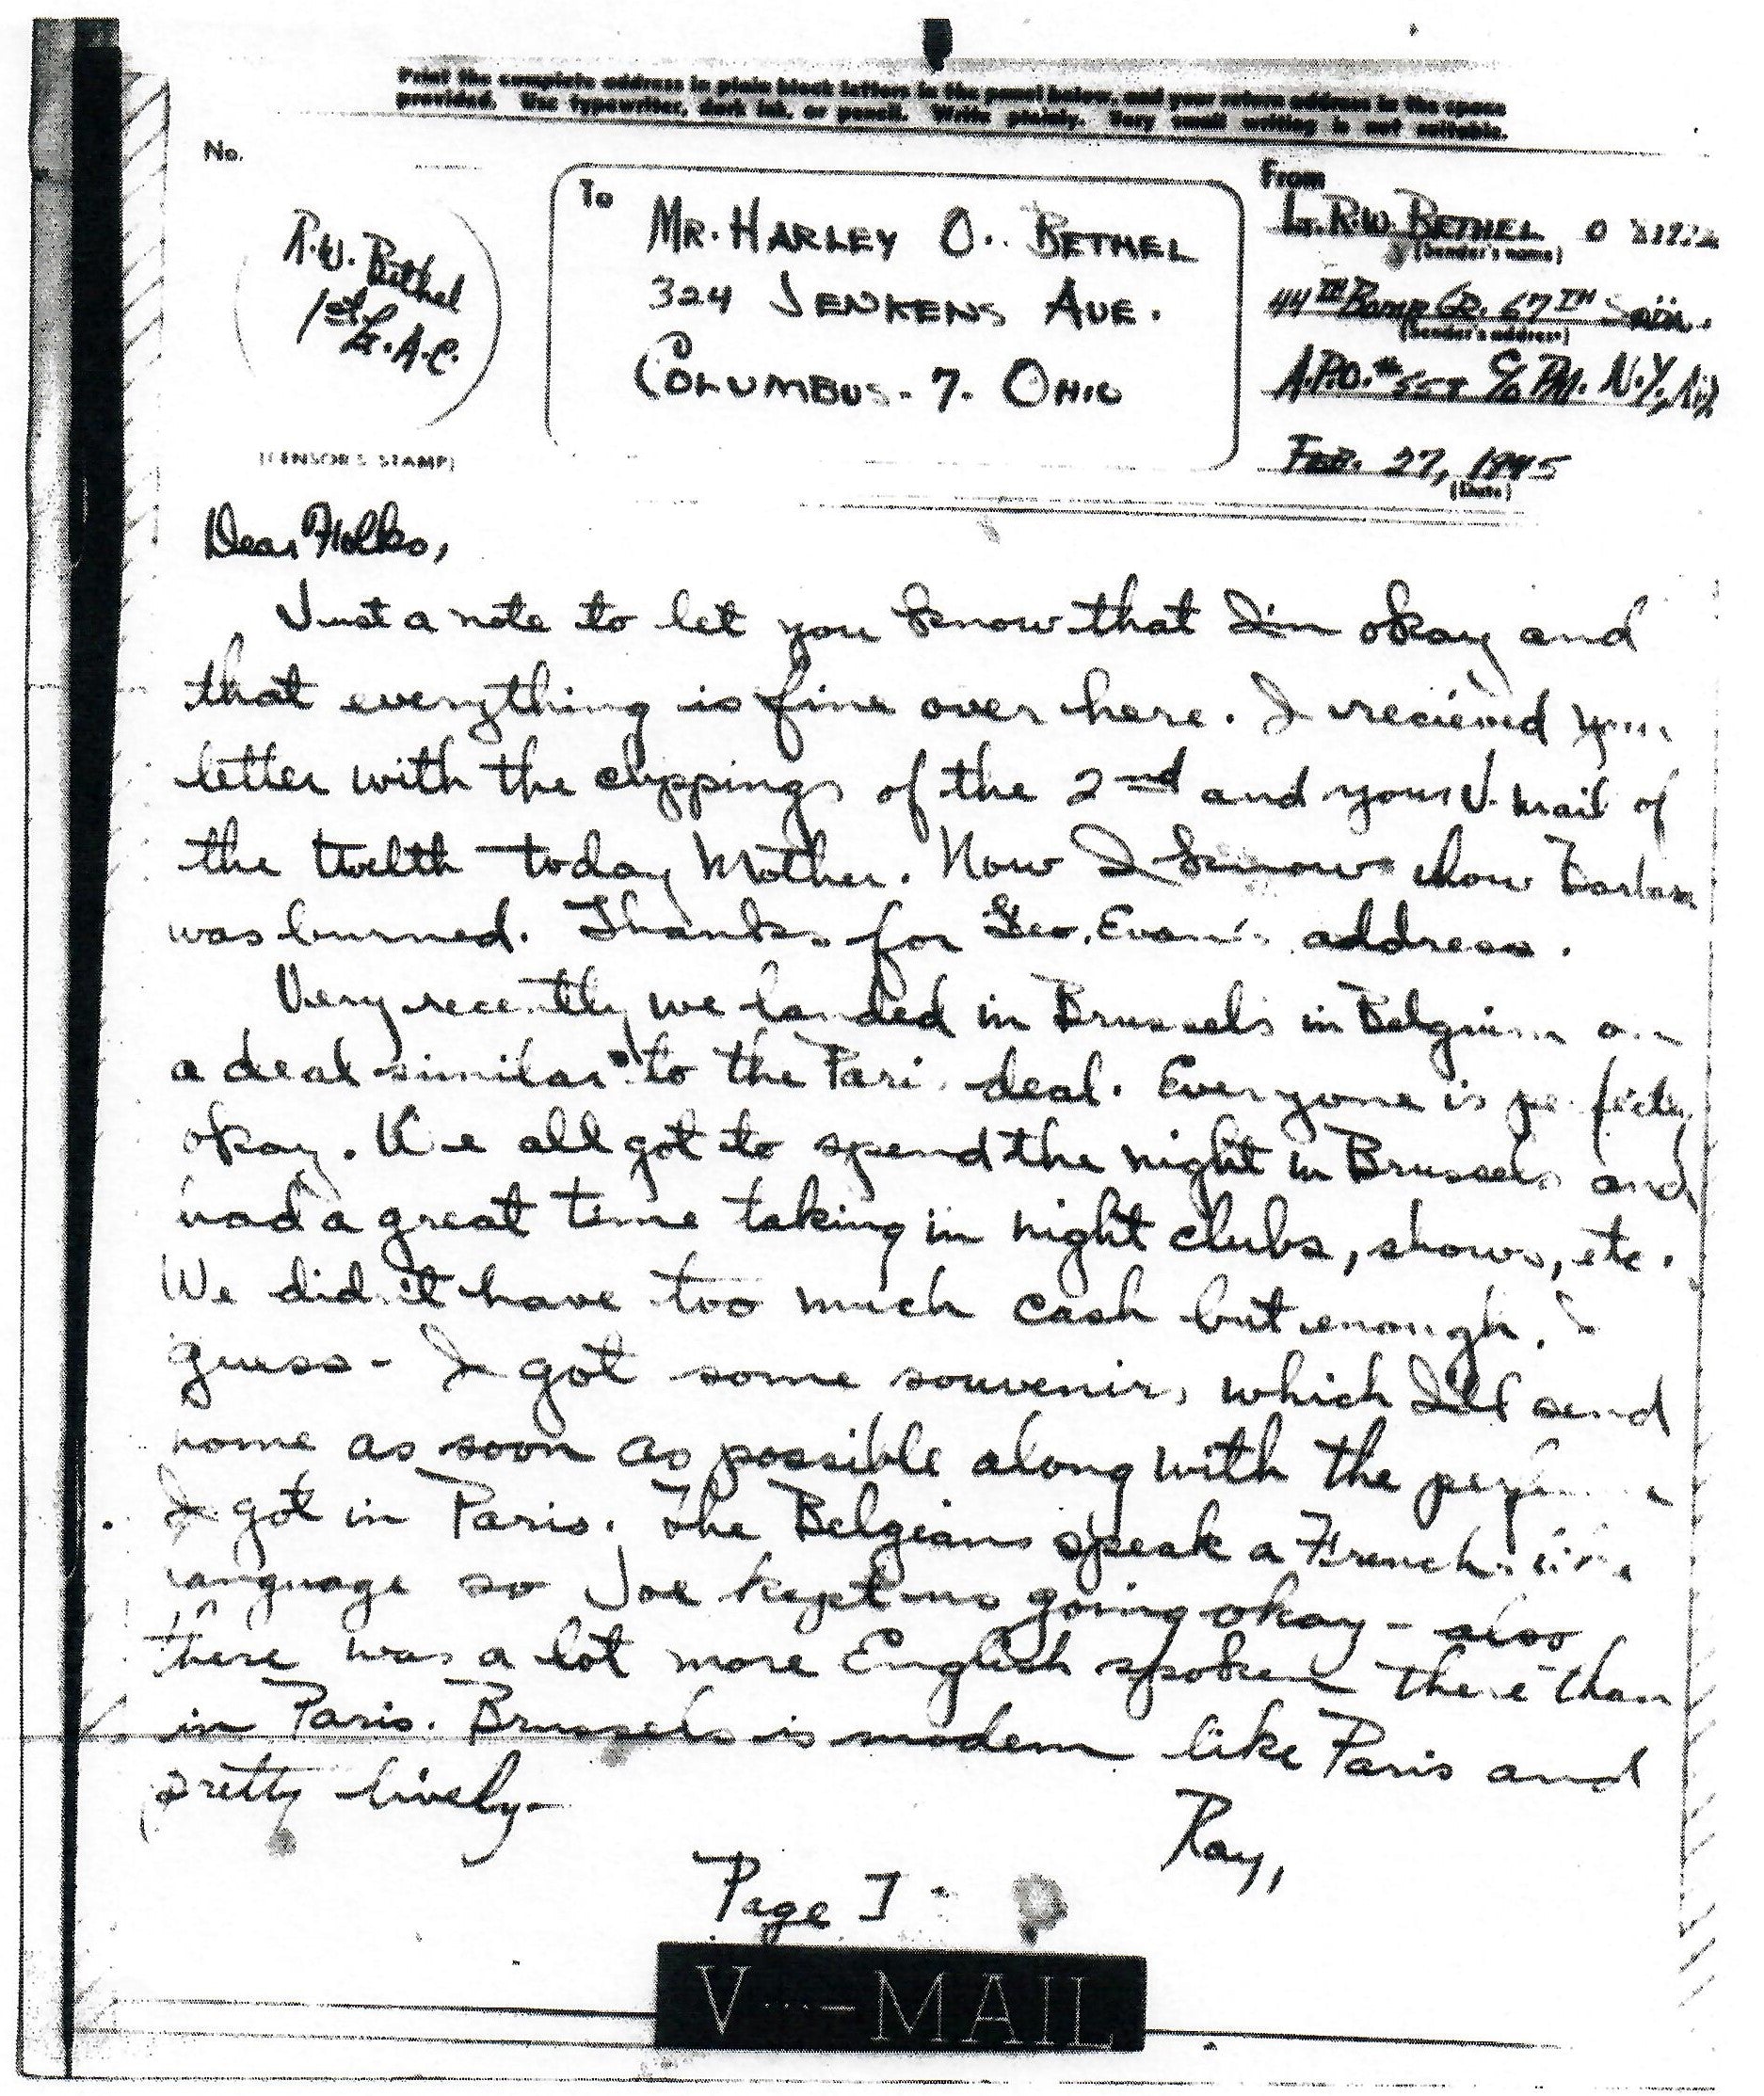 Print the complete address in plain block letters in the panel below, and your return address in the space
provided. Use typewriter, dark ink, or pencil. Write plainly. Very small writing is not suitable.
No.
R.W. Bethel
1st Lt. A.C.
(CENSOR'S STAMP)
To
MR. HARLEY O. BETHEL
324 JENKENS AVE.
COLUMBUS - 7. OHIO
From
LT. R.W. BETHEL O
(Sender's name)
44TH BOMB GR. 67TH
(Sender's address)
A.P.O. #558 C/O P.M. N.Y., N.Y.
FEB. 27, 1945
(Date)
Dear Folks,
Just a note to let you know that I'm okay and
that everything is fine over here. I recieved your
letter with the clippings of the 2nd and your V-Mail of
the twelth today Mother. Now I know how
was burned. Thanks for Geo. Evan's address.
Very recently we landed in Brussels in Belgium on
a deal similar to the Paris deal. Everyone is perfectly
okay. We all got to spend the night in Brussels and
had a great time taking in night clubs, shows, etc.
We didn't have too much cash but enough, I
guess - I got some souvenirs which I'll send
home as soon as possible along with the perfume
I got in Paris. The Belgians speak a French like
language so Joe kept us going okay - also
there was a lot more English spoken there than
in Paris. Brussels is modern like Paris and
pretty lively -
Ray,
Page I -
V···—MAIL